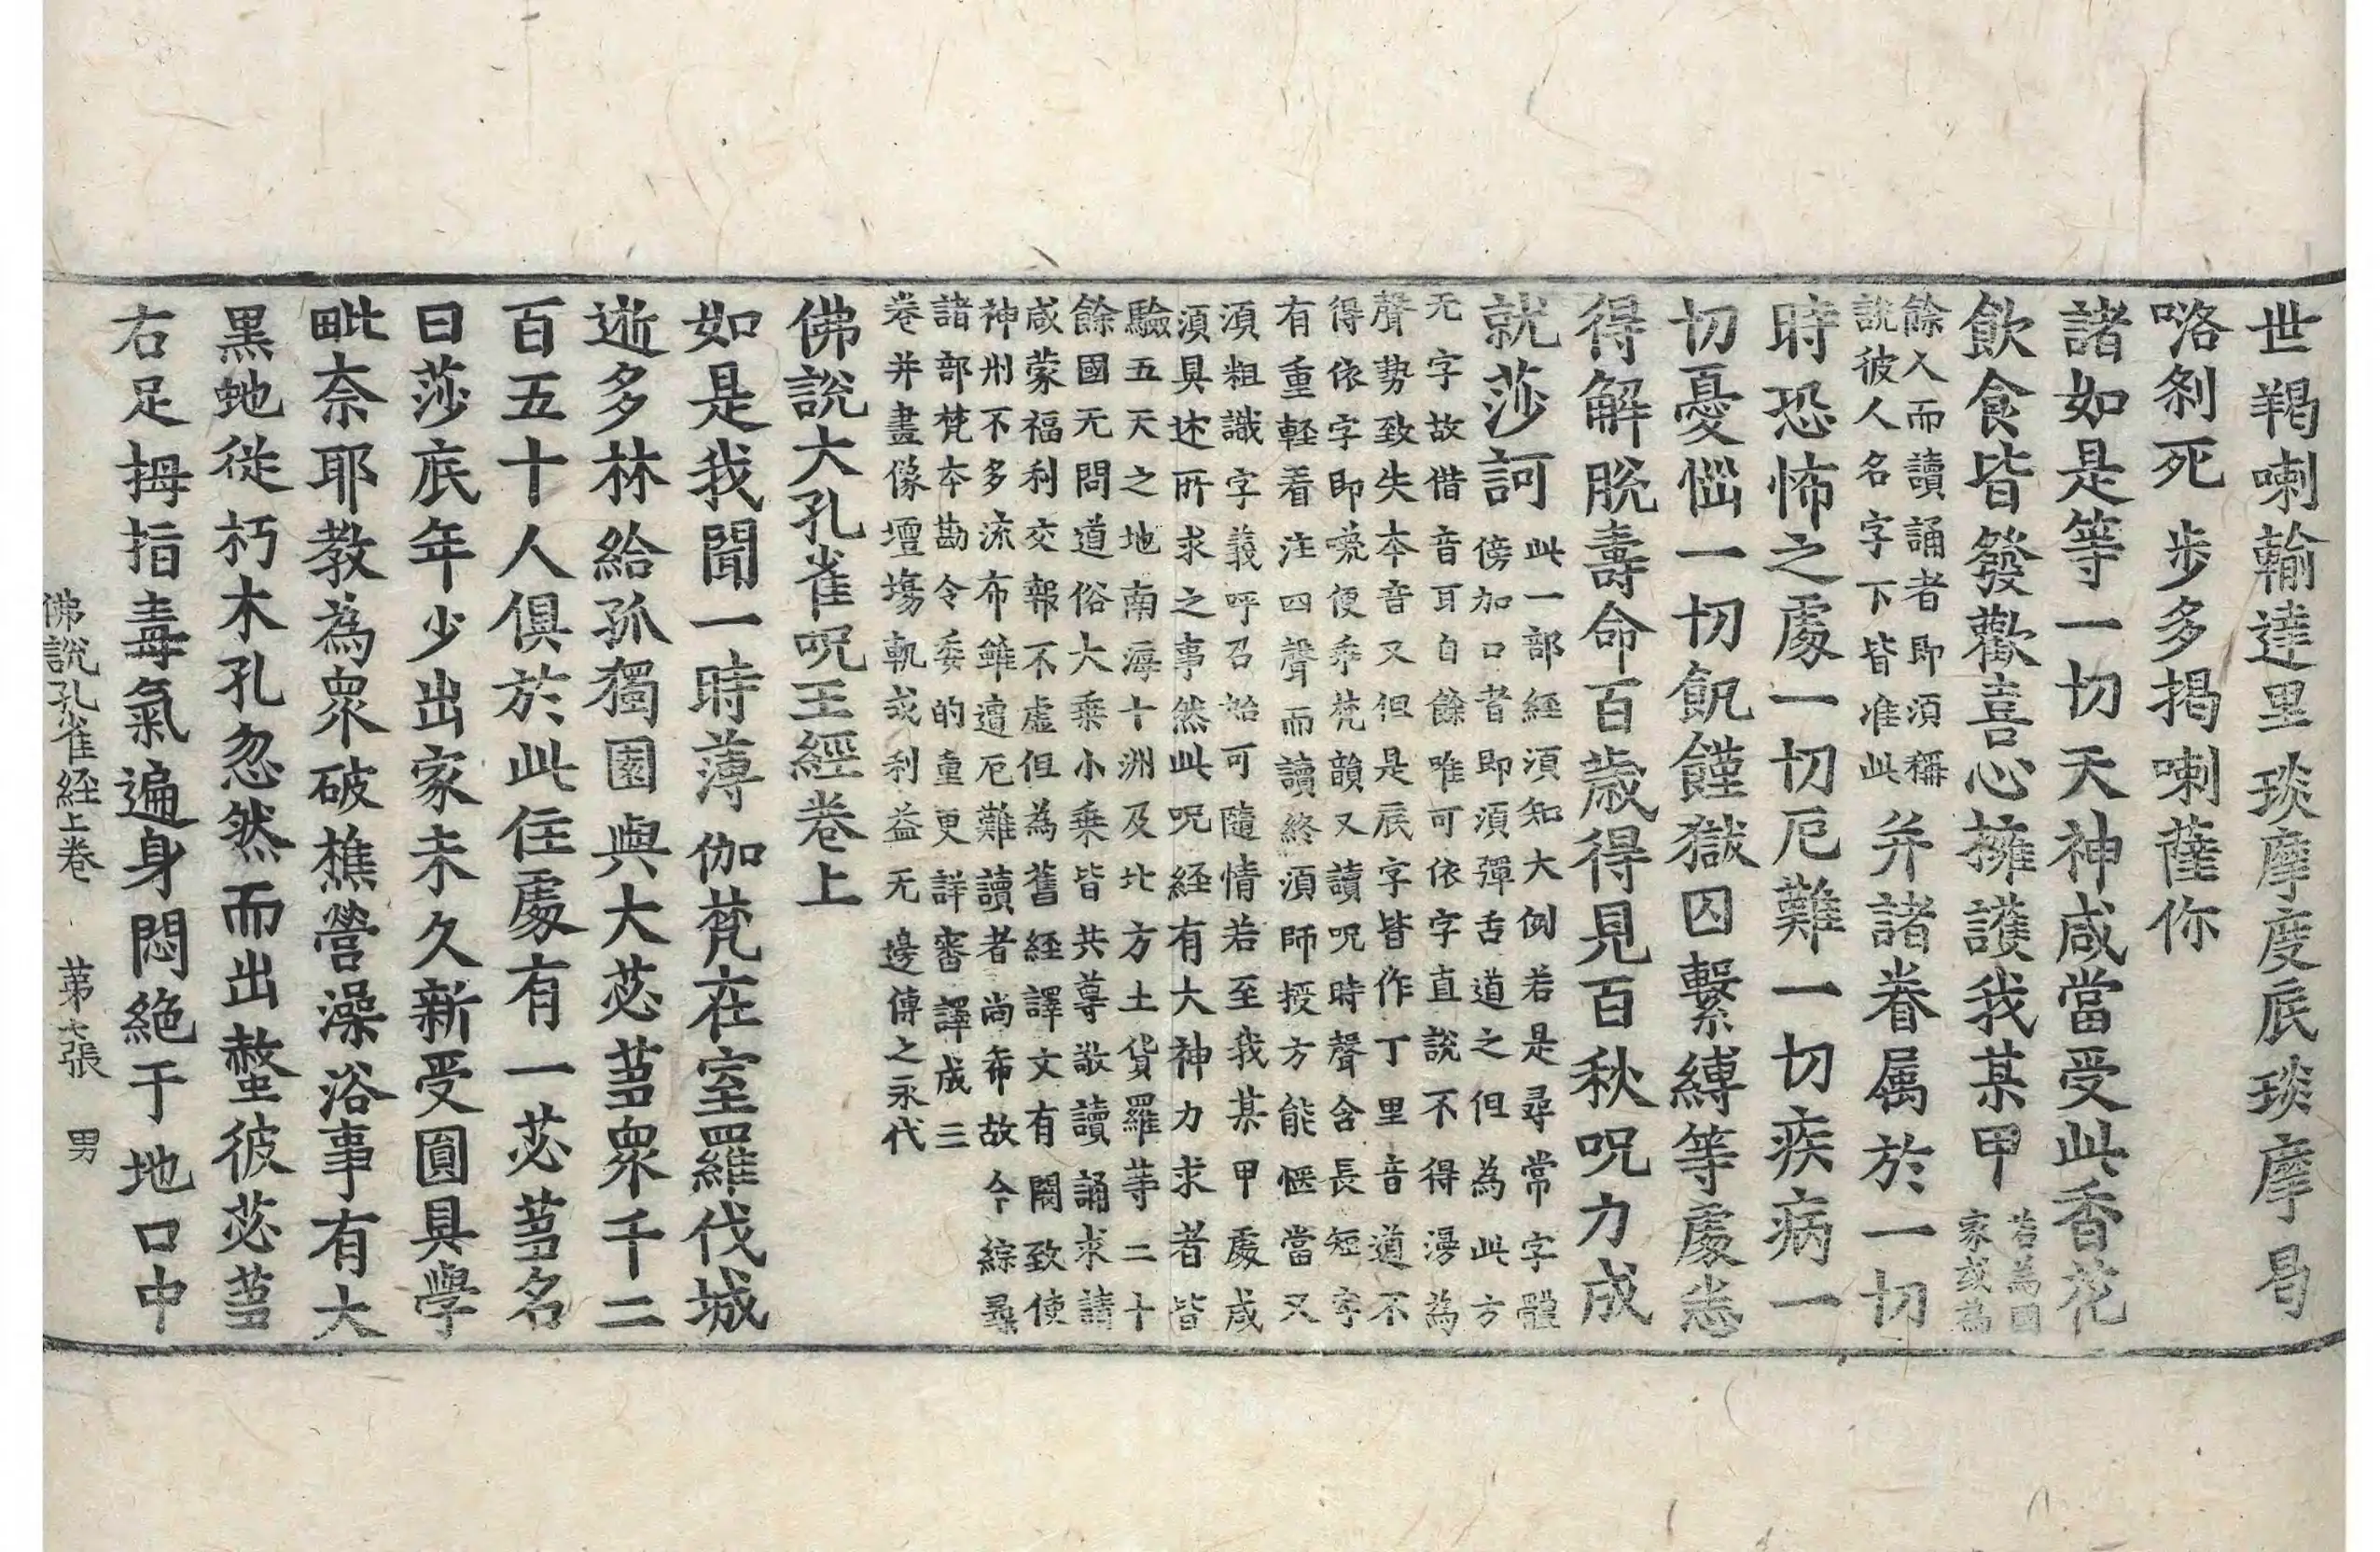 世羯喇輸達里琰摩度底琰摩曷
咯剎死步多揭喇薩你
諸如是等一切天神咸當受此香花
飲食皆發歡喜心擁護我某甲若為國
家或為
餘人而讀誦者即須稱
說彼人名字下皆准此并諸眷属於一切
時恐怖之處一切厄難一切疾病一
切憂惱一切飢饉獄囚繫縛等處悉
得解脫壽命百歲得見百秋呪力成
就莎訶此一部經須知大例若是尋常字體
傍加口者即須彈舌道之但為此方
无字故借音耳自餘唯可依字直說不得漫為
聲勢致失本音又但是底字皆作丁里音道不
得依字即喚便乖梵韻又讀呪時聲含長短字
有重軽看注四聲而讀終須師授方能愜當又
須粗識字義呼召始可隨情若至我某甲處咸
須具述所求之事然此呪経有大神力求者皆
驗五天之地南海十洲及北方土貨羅等二十
餘國无問道俗大乗小乗皆共尊敬讀誦求請
咸蒙福利交報不虛但為舊経譯文有闕致使
神州不多流布雖遭厄難讀者尚希故今綜尋
諸部梵本勘令委的重更詳審譯成三
卷并畫像壇塲軌或利益无邊傳之永代
佛說大孔雀呪王經卷上
如是我聞一時薄伽梵在室羅伐城
逝多林給孤獨園與大苾蒭衆千二
百五十人俱於此住處有一苾蒭名
曰莎底年少出家未久新受圓具學
毗奈耶教為衆破樵營澡浴事有大
黑虵從朽木孔忽然而出螫彼苾蒭
右足拇指毒氣遍身悶絶于地口中
佛說孔雀経上卷 第七張 男